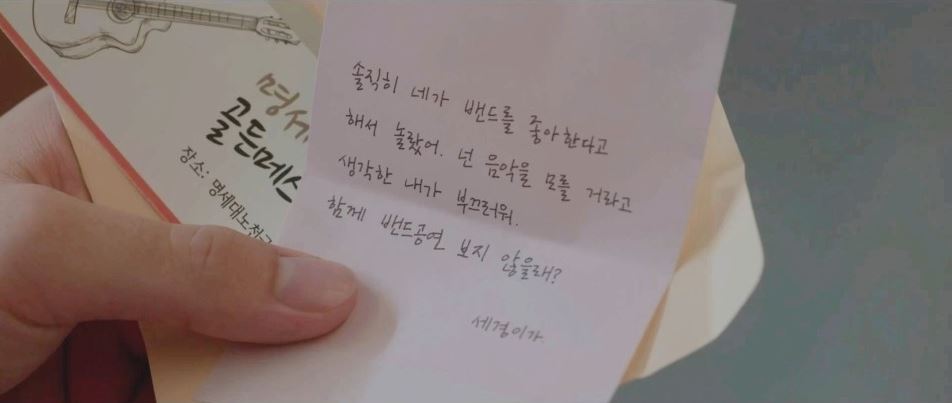 명세
골든메스
장소: 명세대노천극
솔직히 네가 밴드를 좋아한다고
해서 놀랐어. 넌 음악을 모를 거라고
생각한 내가 부끄러워.
함께 밴드공연 보지 않을래?
세경이가.